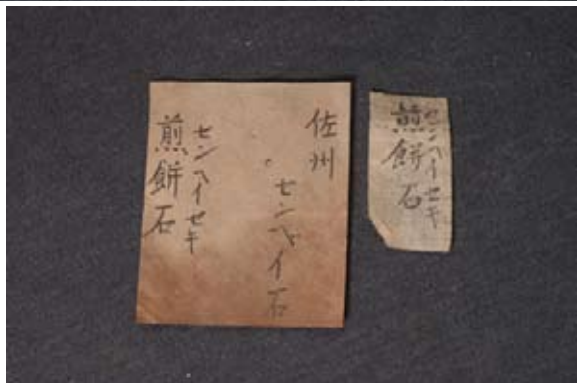 佐州
センベイ石
煎餅石
センヘイセキ
煎餅石
センヘイセキ